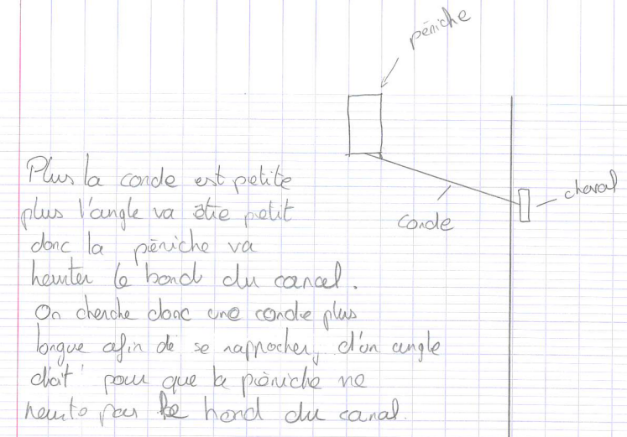 péniche
Plus la corde est petite
cheval
plus l'angle va être petit
corde
donc la péniche va
heurter le bord du canal.
On cherche donc une corde plus
longue afin de se rapprocher, d'un angle
droit pour que la péniche ne
heurte pas le bord du canal.